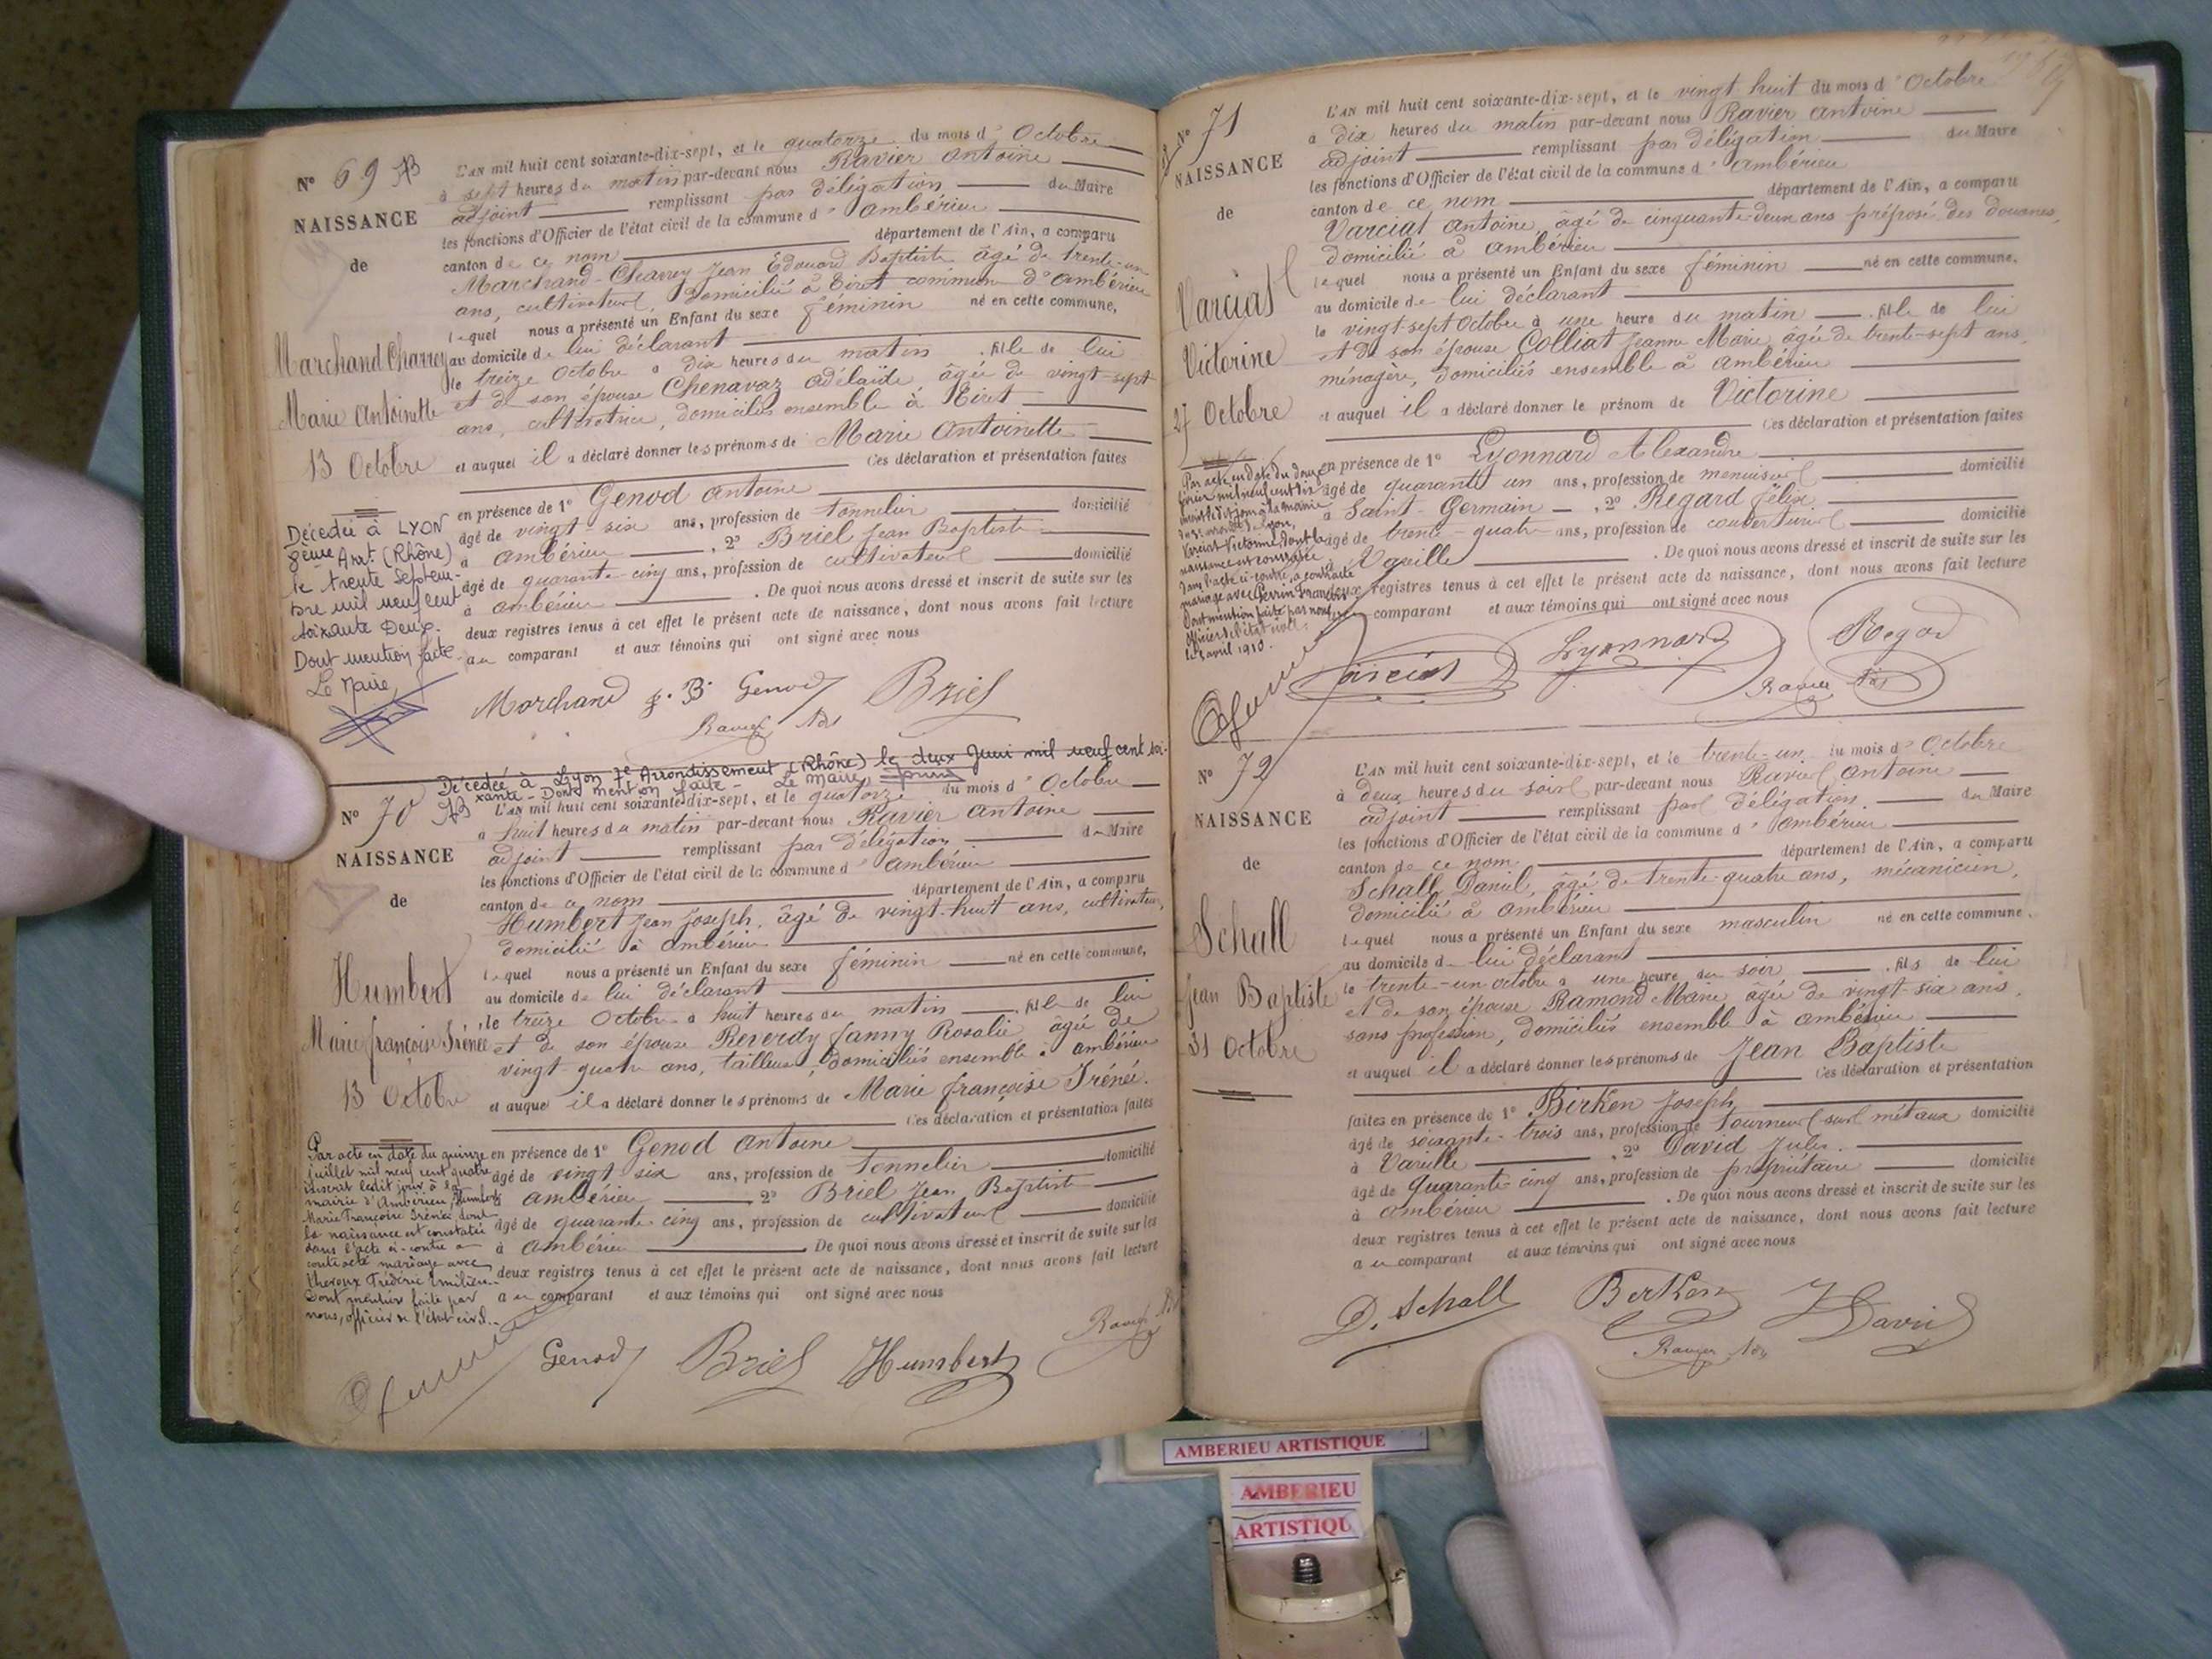 N° 69
NAISSANCE
de
Marchand Charrey
Marie Antoinette
13 Octobre
Décédée à LYON
Arrt. (Rhône)
le trente Septem-
bre mil neuf cent
soixante Deux.
Dont mention faite
Le Maire,
L'AN mil huit cent soixante-dix-sept, et le quatorze du mois d'Octobre
à sept heures du matin par-devant nous Ravier Antoine
adjoint remplissant par délégation du Maire
les fonctions d'Officier de l'état civil de la commune d'Ambérieu
canton de ce nom département de l'Ain, a comparu
Marchand-Charrey Jean Edouard Baptiste âgé de trente-un
ans, cultivateur, domicilié à commune d'Ambérieu
lequel nous a présenté un Enfant du sexe féminin né en cette commune,
au domicile de lui déclarant
le treize Octobre à dix heures du matin . fille de lui
et de son épouse Chenavaz Adélaïde, âgée de vingt-sept
ans, cultivatrice, domiciliés ensemble à
et auquel il a déclaré donner les prénoms de Marie Antoinette
Ces déclaration et présentation faites
en présence de 1° Genod Antoine domicilié
âgé de vingt-six ans, profession de tonnelier
à Ambérieu , 2° Briel Jean Baptiste domicilié
âgé de quarante-cinq ans, profession de cultivateur
à Ambérieu . De quoi nous avons dressé et inscrit de suite sur les
deux registres tenus à cet effet le présent acte de naissance, dont nous avons fait lecture
au comparant et aux témoins qui ont signé avec nous
Marchand j. B. Genod Briel
Ravier Adj
Décédée à Lyon 7e Arrondissement (Rhône) le deux Juin mil neuf cent soi-
xante - Dont mention faite - Le Maire,
N° 70
NAISSANCE
de
Humbert
Marie françoise Irénée
13 Octobre
Par acte en date du quinze
juillet mil neuf cent quatre
inscrit ledit jour à la
mairie d'Ambérieu, Humbert
Marie Françoise Irénée, dont
la naissance est constatée
dans l'acte ci-contre a
contracté mariage avec
Frédéric Emilien.
Dont mention faite par
nous, officier de l'état-civil.
L'AN mil huit cent soixante-dix-sept, et le quatorze du mois d'Octobre
à huit heures du matin par-devant nous Ravier Antoine
adjoint remplissant par délégation du Maire
les fonctions d'Officier de l'état civil de la commune d'Ambérieu
canton de ce nom département de l'Ain, a comparu
Humbert Jean Joseph, âgé de vingt-huit ans, cultivateur,
domicilié à Ambérieu
lequel nous a présenté un Enfant du sexe féminin né en cette commune,
au domicile de lui déclarant
le treize Octobre à huit heures du matin . fille de lui
et de son épouse Reverdy fanny Rosalie âgée de
vingt-quatre ans, tailleuse, domiciliés ensemble à Ambérieu
et auquel il a déclaré donner les prénoms de Marie françoise Irénée.
Ces déclaration et présentation faites
en présence de 1° Genod Antoine domicilié
âgé de vingt six ans, profession de tonnelier
à Ambérieu 2° Briel Jean Baptiste
âgé de quarante-cinq ans, profession de cultivateur domicilié
à Ambérieu De quoi nous avons dressé et inscrit de suite sur les
deux registres tenus à cet effet le présent acte de naissance, dont nous avons fait lecture
au comparant et aux témoins qui ont signé avec nous
Genod Briel Humbert Ravier
N° 71
NAISSANCE
de
Varciat
Victorine
27 Octobre
Par acte en date du douze
Lyon,
Varciat Victorine, dont la
naissance est constatée
dans l'acte ci-contre, a contracté
mariage avec Perrin
Dont mention faite par nous,
officier de l'état civil.
avril 1910.
L'AN mil huit cent soixante-dix-sept, et le vingt-huit du mois d'Octobre
à dix heures du matin par-devant nous Ravier Antoine
adjoint remplissant par délégation du Maire
les fonctions d'Officier de l'état civil de la commune d'Ambérieu
canton de ce nom département de l'Ain, a comparu
Varciat Antoine, âgé de cinquante-deux ans préposé des douanes,
domicilié à Ambérieu
lequel nous a présenté un Enfant du sexe féminin né en cette commune.
au domicile de lui déclarant
le vingt-sept Octobre à une heure du matin . fille de lui
et de son épouse Colliat Jeanne Marie, âgée de trente-sept ans,
ménagère, domiciliés ensemble à Ambérieu
et auquel il a déclaré donner le prénom de Victorine
Ces déclaration et présentation faites
en présence de 1° Lyonnard Alexandre
âgé de quarante un ans, profession de menuisier domicilié
à Saint-Germain , 2° Regard félix
âgé de trente-quatre ans, profession de domicilié
à Vareille . De quoi nous avons dressé et inscrit de suite sur les
deux registres tenus à cet effet le présent acte de naissance, dont nous avons fait lecture
comparant et aux témoins qui ont signé avec nous
Varciat Lyonnard Regard
Ravier Adj
N° 72
NAISSANCE
de
Schall
Jean Baptiste
31 Octobre
L'AN mil huit cent soixante-dix-sept, et le trente-un du mois d'Octobre
à deux heures du soir par-devant nous Ravier Antoine
adjoint remplissant par délégation du Maire
les fonctions d'Officier de l'état civil de la commune d'Ambérieu
canton de ce nom département de l'Ain, a comparu
Schall Daniel, âgé de trente-quatre ans, mécanicien,
domicilié à Ambérieu
lequel nous a présenté un Enfant du sexe masculin né en cette commune.
au domicile de lui déclarant
le trente-un octobre à une heure du soir . fils de lui
et de son épouse Ramond Marie âgée de vingt-six ans,
sans profession, domiciliés ensemble à Ambérieu
et auquel il a déclaré donner les prénoms de Jean Baptiste
Ces déclaration et présentation
faites en présence de 1° Birken Joseph
âgé de soixante-trois ans, profession de tourneur sur métaux domicilié
à Vareille , 2° David Jules.
âgé de quarante-cinq ans, profession de propriétaire domicilié
à Ambérieu . De quoi nous avons dressé et inscrit de suite sur les
deux registres tenus à cet effet le présent acte de naissance, dont nous avons fait lecture
au comparant et aux témoins qui ont signé avec nous
D. Schall Berken J David
Ravier Adj
AMBERIEU ARTISTIQUE
AMBERIEU
ARTISTIQU